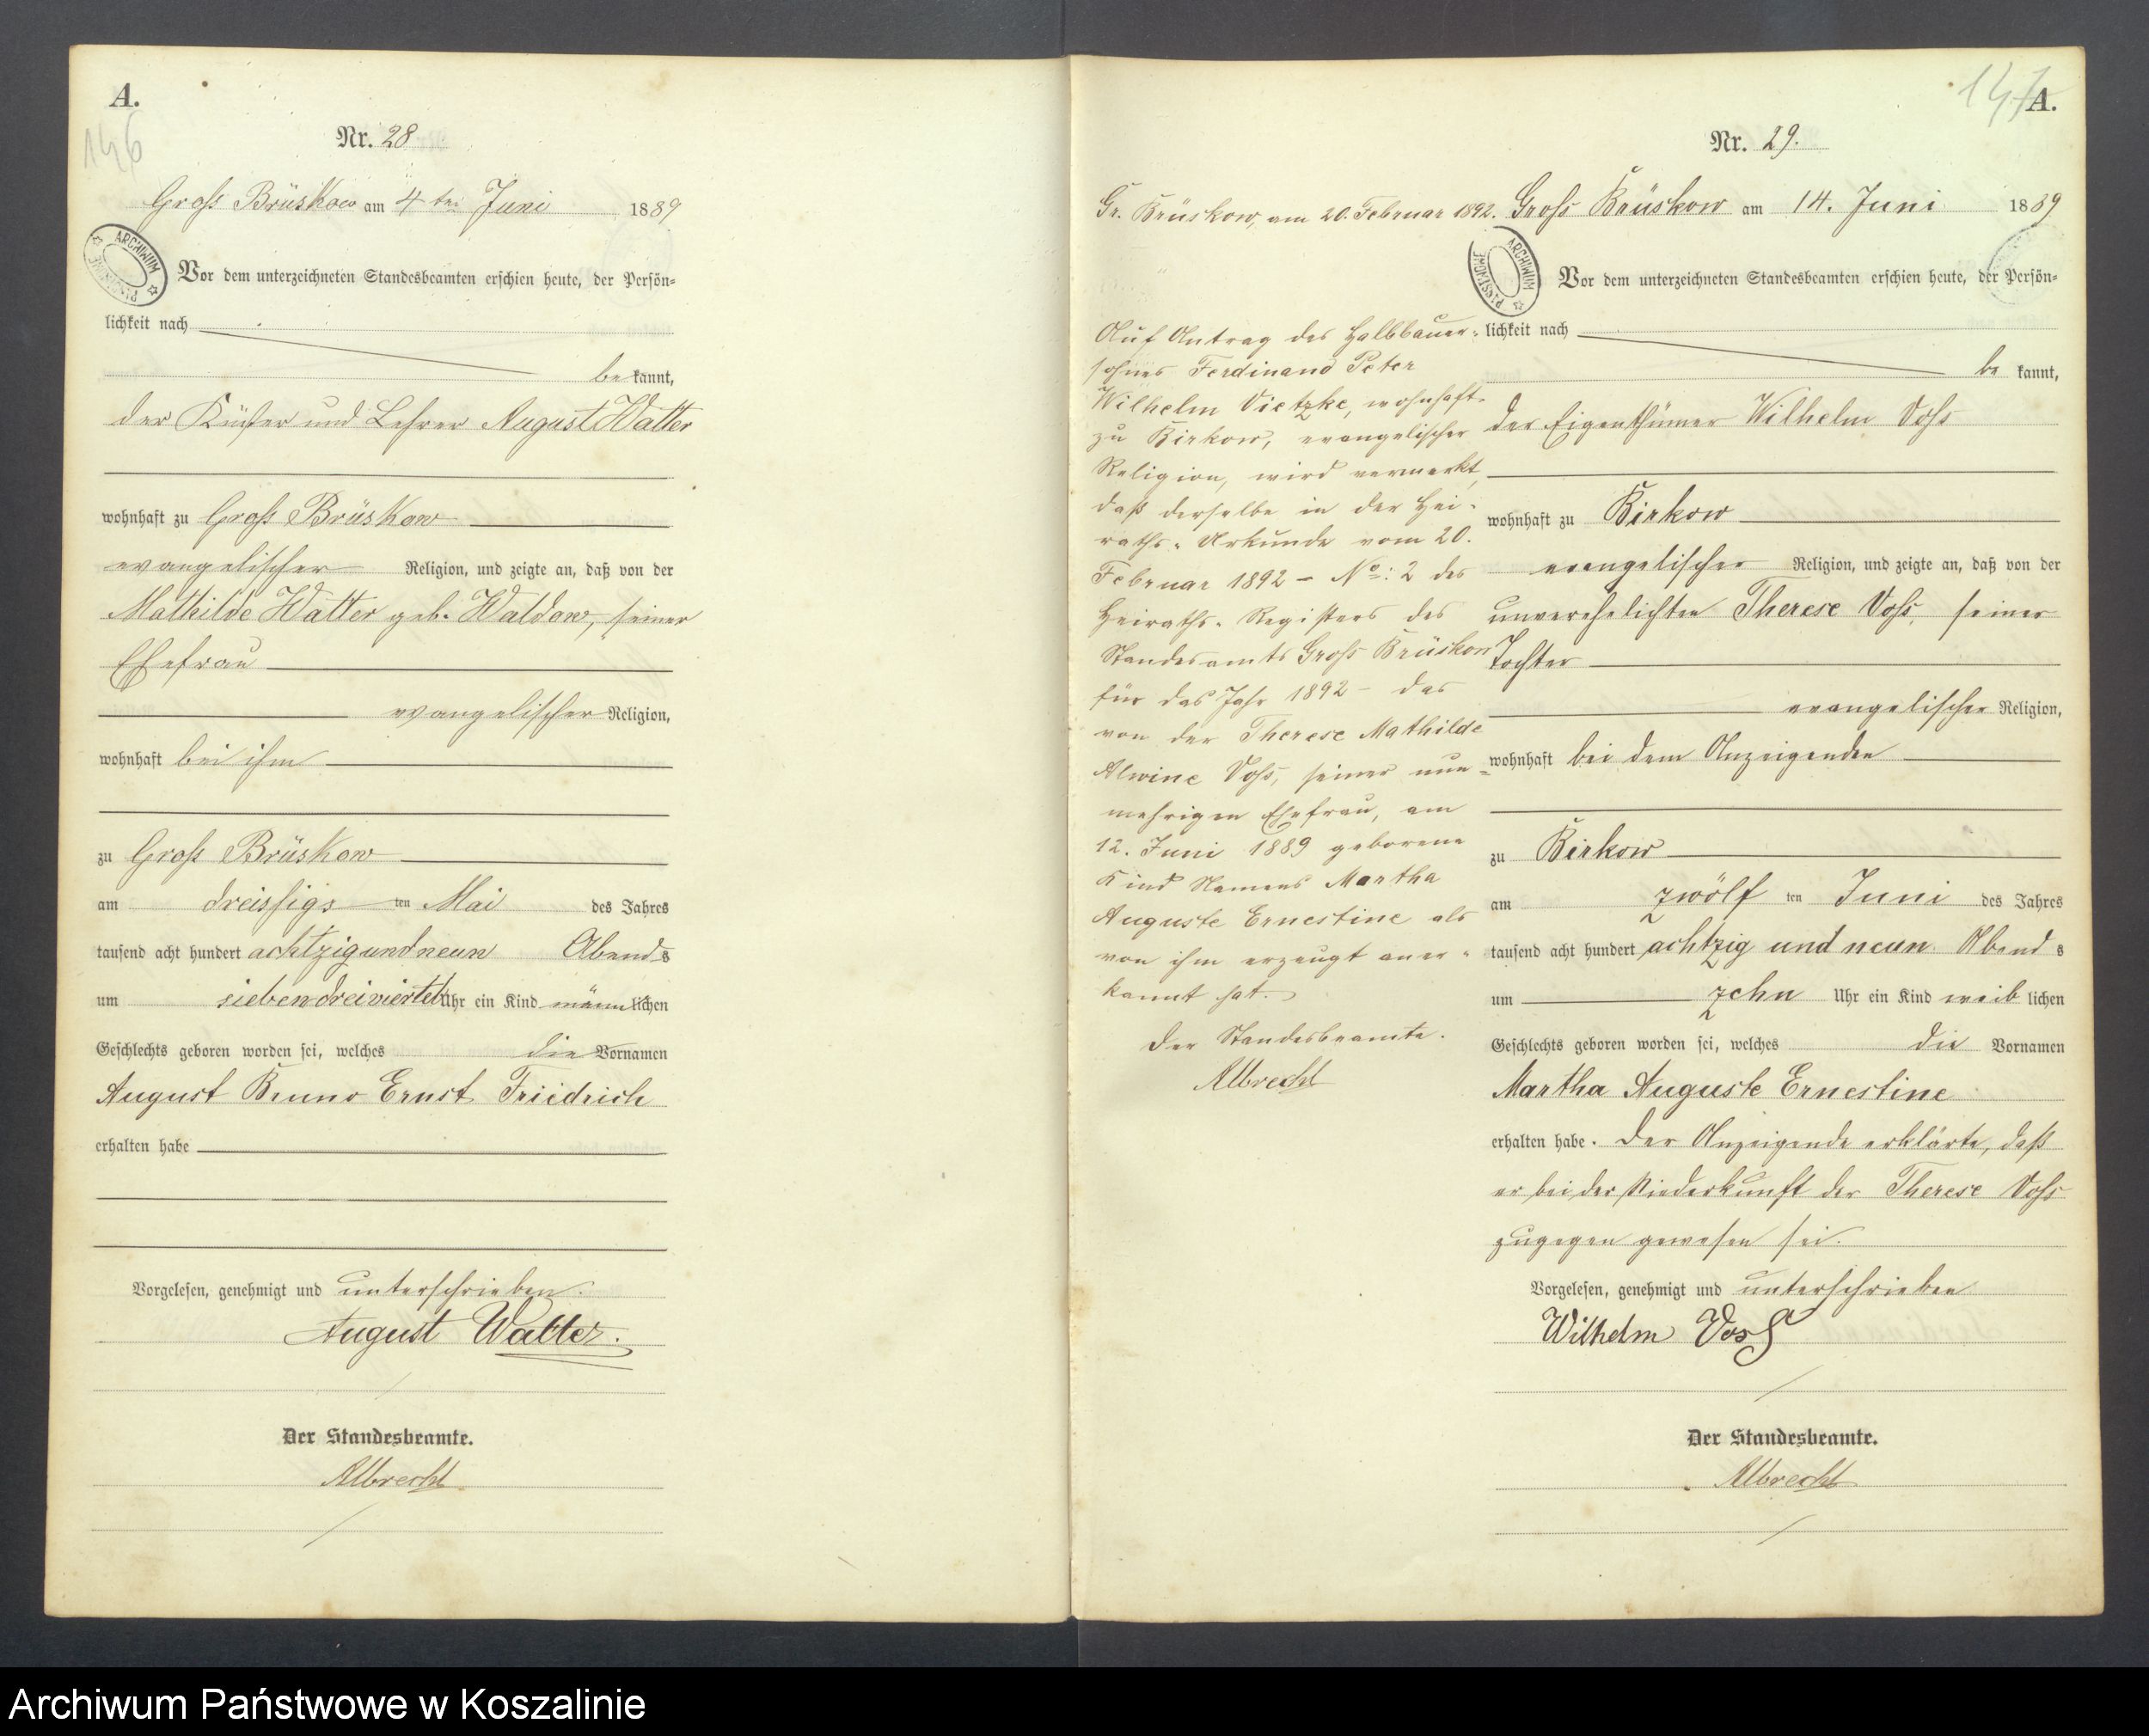 A.
146
Nr. 28
Gross Brüskow am 4ten Juni 1889
ARCHIWUM PAŃSTWOWE
Vor dem unterzeichneten Standesbeamten erschien heute, der Persön-
lichkeit nach
be kannt,
der Küster und Lehrer August Walter
wohnhaft zu Gross Brüskow
evangelischer Religion, und zeigte an, daß von der
Mathilde Walter geb. Waldow, seiner
Ehefrau
evangelischer Religion,
wohnhaft bei ihm
zu Gross Brüskow
am dreissigsten Mai des Jahres
tausend acht hundert achtzig und neun Abends
um sieben dreiviertel Uhr ein Kind männlichen
Geschlechts geboren worden sei, welches die Vornamen
August Bruno Ernst Friedrich
erhalten habe
Vorgelesen, genehmigt und unterschrieben.
August Walter.
Der Standesbeamte.
Albrecht
147
A.
Nr. 29.
Gross Brüskow am 14. Juni 1889
ARCHIWUM PAŃSTWOWE
Vor dem unterzeichneten Standesbeamten erschien heute, der Persön-
lichkeit nach
be kannt,
der Eigenthümer Wilhelm Voss
wohnhaft zu Birkow
evangelischer Religion, und zeigte an, daß von der
unverehelichten Therese Voss, seiner
Tochter
evangelischer Religion,
wohnhaft bei dem Anzeigenden
zu Birkow
am zwölf ten Juni des Jahres
tausend acht hundert achtzig und neun Abend s
um zehn Uhr ein Kind weib lichen
Geschlechts geboren worden sei, welches die Vornamen
Martha Auguste Ernestine
erhalten habe. Der Anzeigende erklärte, daß
er bei der Niederkunft der Therese Voss
zugegen gewesen sei.
Vorgelesen, genehmigt und unterschrieben
Wilhelm Voss
Der Standesbeamte.
Albrecht
Gr. Brüskow, am 20. Februar 1892.
Auf Antrag des Halbbauer-
sohnes Ferdinand Peter
Wilhelm Vietzke, wohnhaft
zu Birkow, evangelischer
Religion, wird vermerkt,
daß derselbe in der Hei-
raths-Urkunde vom 20.
Februar 1892 – No: 2 des
Heiraths-Registers des
Standesamts Gross Brüskow
für das Jahr 1892 – das
von der Therese Mathilde
Alwine Voss, seiner nun-
mehrigen Ehefrau, am
12. Juni 1889 geborene
Kind Namens Martha
Auguste Ernestine als
von ihm erzeugt aner-
kannt hat.
Der Standesbeamte.
Albrecht
Archiwum Państwowe w Koszalinie